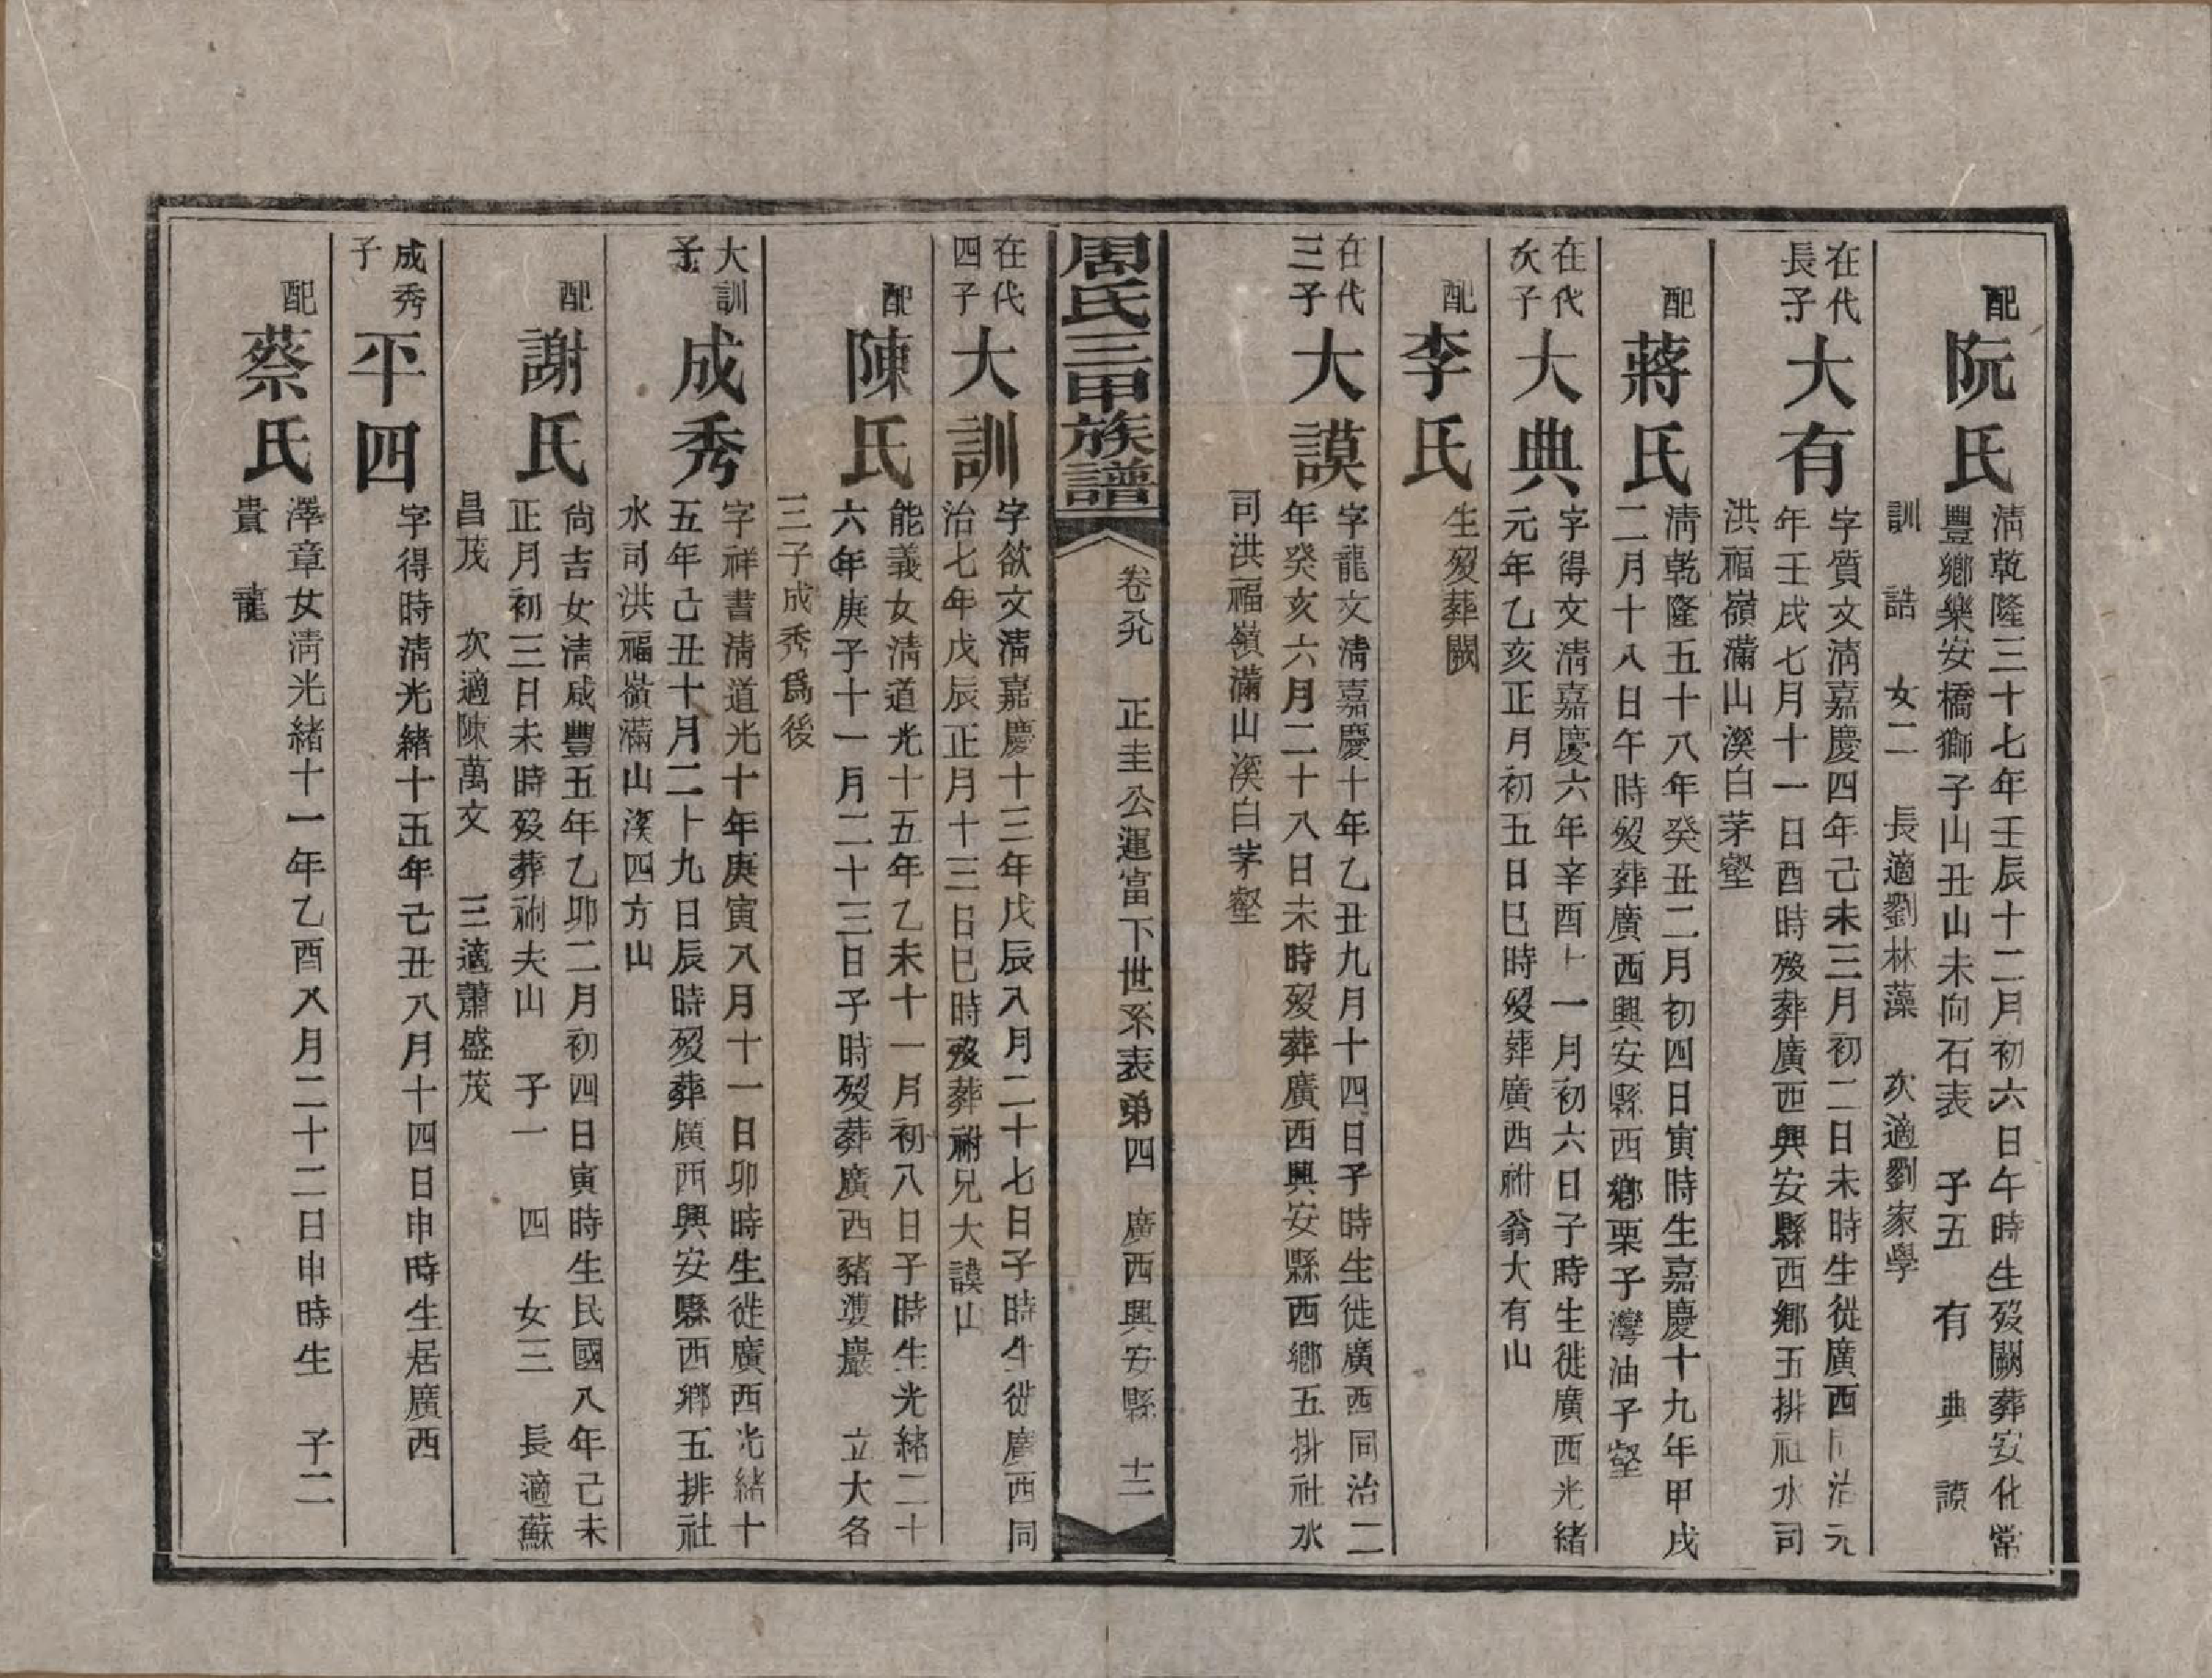 配
阮氏
清乾隆三十七年壬辰十二月初六日午時生歿闕葬安化常
豐鄉樂安橋獅子山丑山未向石表 子五 有 典 謨
訓 誥 女二 長適劉林藻 次適劉家學
在代
長子
大有
字質文清嘉慶四年己未三月初二日未時生從廣西同治元
年壬戌七月十一日酉時歿葬廣西興安縣西鄉五排社水司
洪福嶺滿山溪白茅壑
配
蔣氏
清乾隆五十八年癸丑二月初四日寅時生嘉慶十九年甲戌
二月十八日午時歿葬廣西興安縣西鄉栗子灣油子壑
在代
次子
大典
字得文清嘉慶六年辛酉十一月初六日子時生徙廣西光緒
元年乙亥正月初五日巳時歿葬廣西祔翁大有山
配
李氏
生歿葬闕
在代
三子
大謨
字龍文清嘉慶十年乙丑九月十四日子時生徙廣西同治二
年癸亥六月二十八日未時歿葬廣西興安縣西鄉五排社水
司洪福嶺滿山溪白茅壑
周氏三甲族譜
卷廾九 正圭公運富下世系表弟四 廣西興安縣 十二
在代
四子
大訓
字欲文清嘉慶十三年戊辰八月二十七日子時生徙廣西同
治七年戊辰正月十三日巳時歿葬祔兄大謨山
配
陳氏
能義女清道光十五年乙未十一月初八日子時生光緒二十
六年庚子十一月二十三日子時歿葬廣西豬漊巖 立大名
三子成秀爲後
大訓
子
成秀
字祥書清道光十年庚寅八月十一日卯時生徙廣西光緒十
五年己丑十月二十九日辰時歿葬廣西興安縣西鄉五排社
水司洪福嶺滿山溪四方山
配
謝氏
尚吉女清咸豐五年乙卯二月初四日寅時生民國八年己未
正月初三日未時歿葬祔夫山 子一 四 女三 長適蘇
昌茂 次適陳萬文 三適蕭盛茂
成秀
子
平四
字得時清光緒十五年己丑八月十四日申時生居廣西
配
蔡氏
澤章女清光緒十一年乙酉八月二十二日申時生 子二
貴 龍